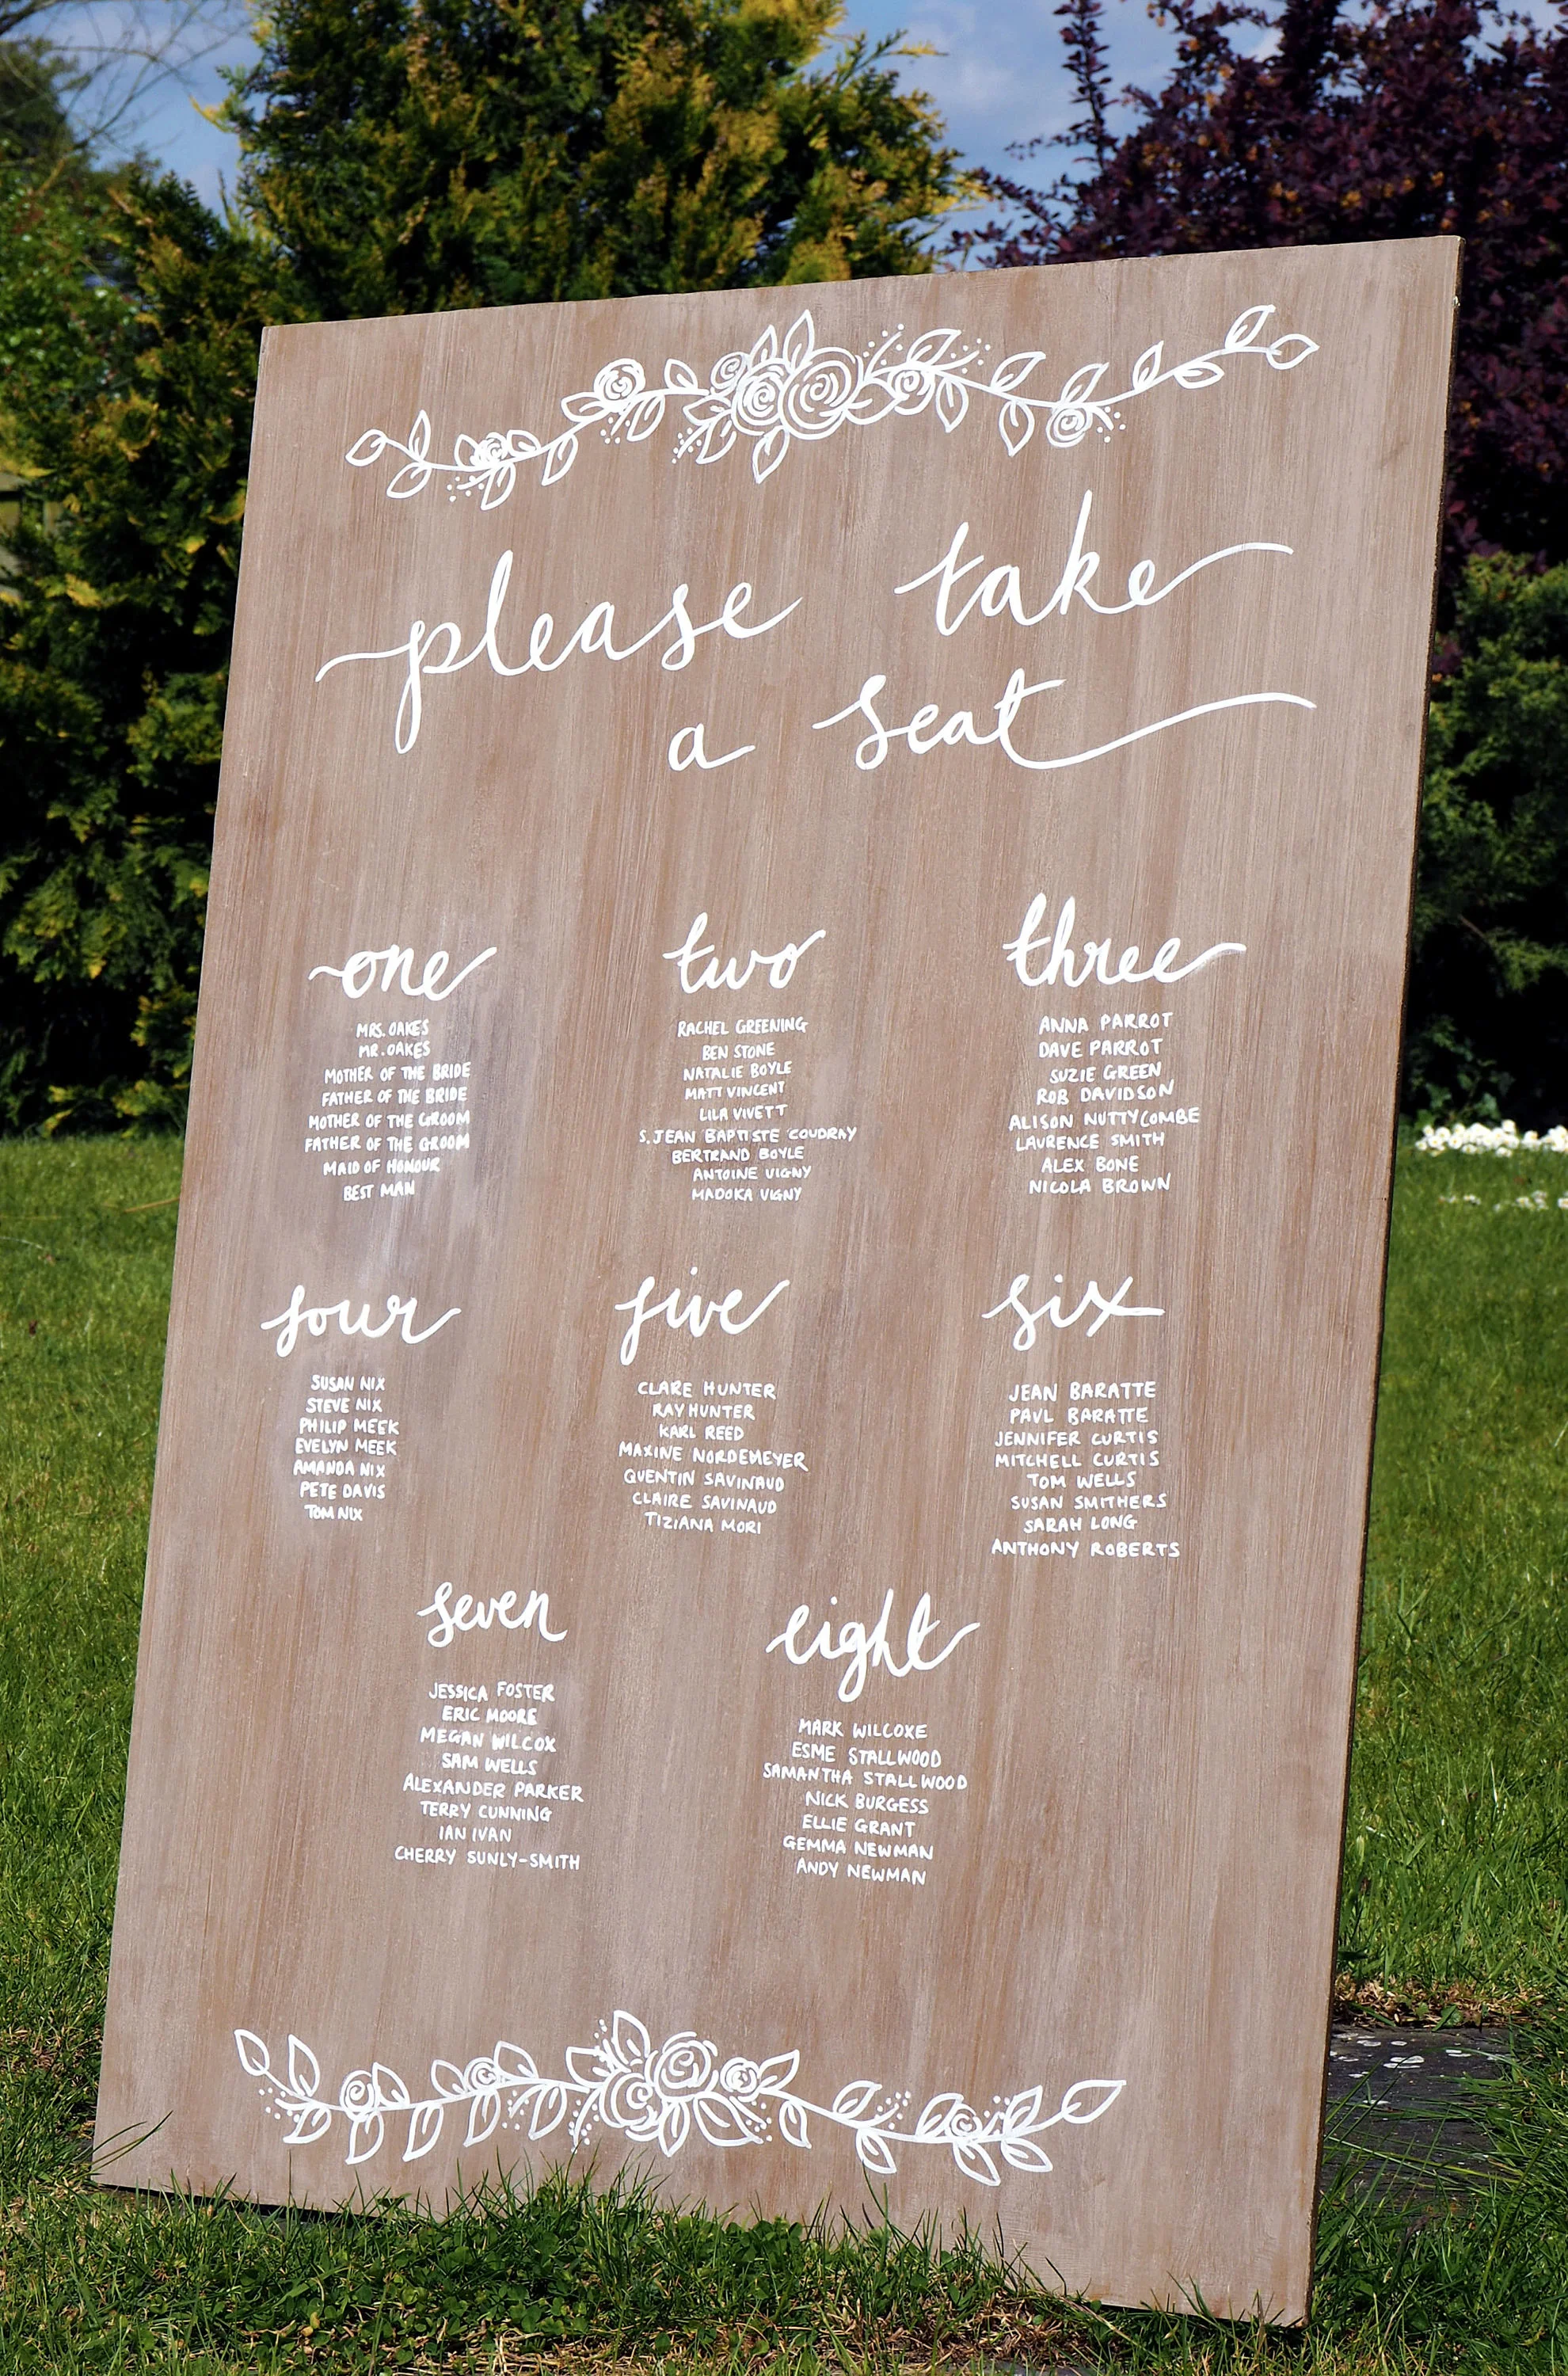 please take
a seat
one
MRS. OAKES
MR. OAKES
MOTHER OF THE BRIDE
FATHER OF THE BRIDE
MOTHER OF THE GROOM
FATHER OF THE GROOM
MAID OF HONOUR
BEST MAN
two
RACHEL GREENING
BEN STONE
NATALIE BOYLE
MATT VINCENT
LILA VIVETT
S. JEAN BAPTISTE COUDRAY
BERTRAND BOYLE
ANTOINE VIGNY
MADOKA VIGNY
three
ANNA PARROT
DAVE PARROT
SUZIE GREEN
ROB DAVIDSON
ALISON NUTTYCOMBE
LAURENCE SMITH
ALEX BONE
NICOLA BROWN
four
SUSAN NIX
STEVE NIX
PHILIP MEEK
EVELYN MEEK
AMANDA NIX
PETE DAVIS
TOM NIX
five
CLARE HUNTER
RAY HUNTER
KARL REED
MAXINE NORDEMEYER
QUENTIN SAVINAUD
CLAIRE SAVINAUD
TIZIANA MORI
six
JEAN BARATTE
PAUL BARATTE
JENNIFER CURTIS
MITCHELL CURTIS
TOM WELLS
SUSAN SMITHERS
SARAH LONG
ANTHONY ROBERTS
seven
JESSICA FOSTER
ERIC MOORE
MEGAN WILCOX
SAM WELLS
ALEXANDER PARKER
TERRY CUNNING
IAN IVAN
CHERRY SUNLY-SMITH
eight
MARK WILCOXE
ESME STALLWOOD
SAMANTHA STALLWOOD
NICK BURGESS
ELLIE GRANT
GEMMA NEWMAN
ANDY NEWMAN